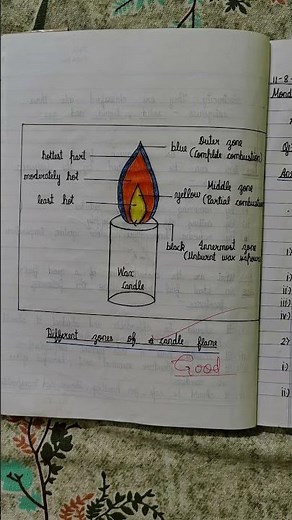 Outer zone
blue (Complete combustion)
hottest part
moderately hot
Middle zone
least hot
yellow (Partial combustion
black Innermost zone
(Unburnt wax vapours)
Wax
Candle
Different zones of a candle flame
Good
11-8-
Mond
i)
i)
ii)
iii)
iv)
2)
i)
ii)